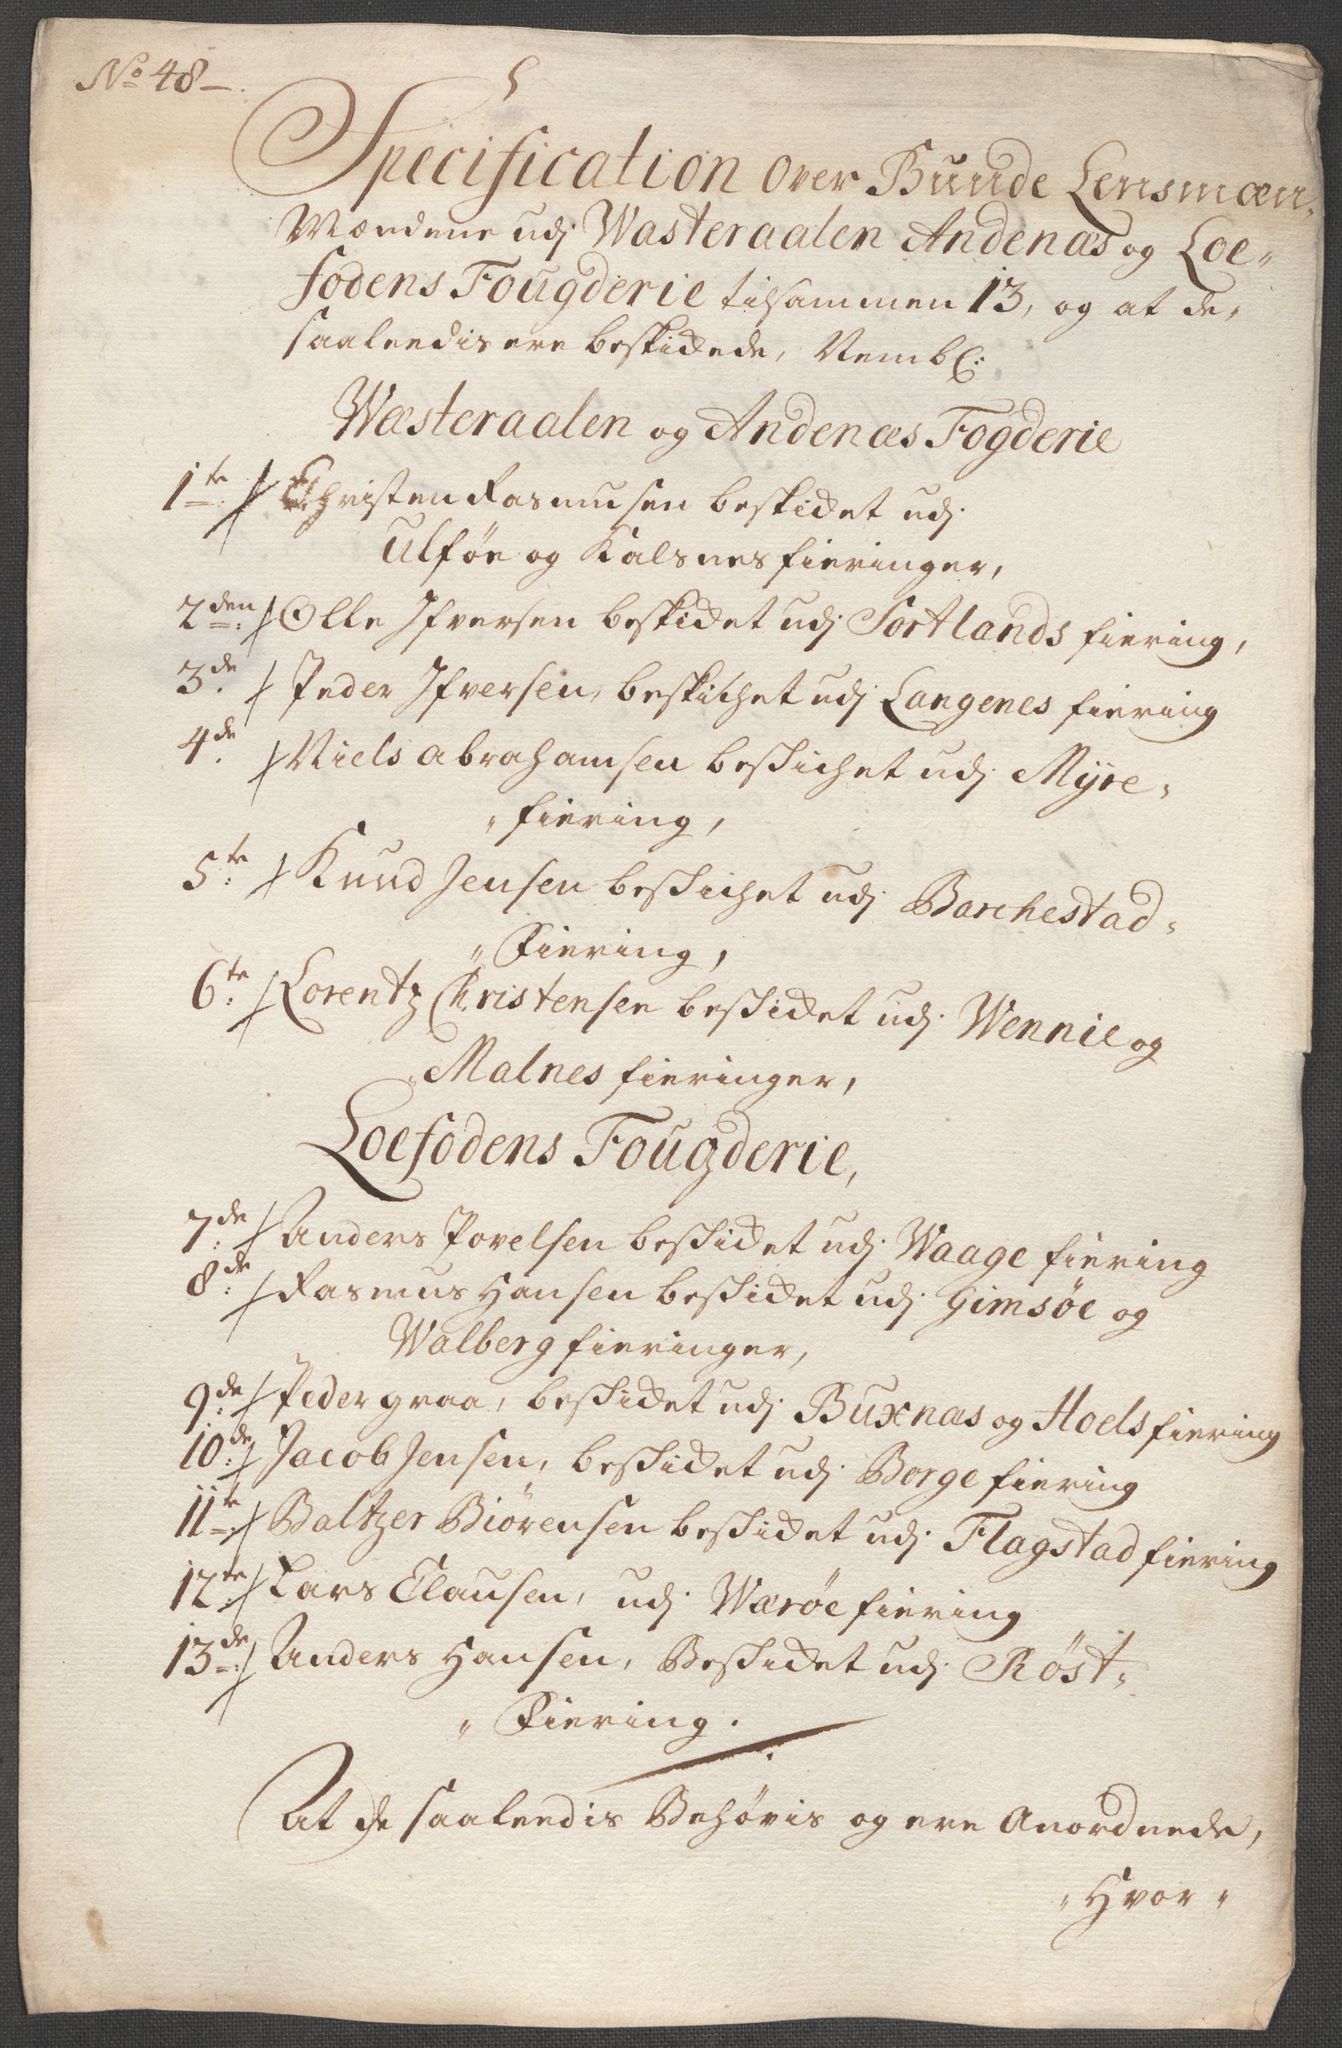 No 48
Specification over Bunde Lensmæn,,
Mændene udj Wasteraalen Andenæs og Loe,,
fodens Fougderie tilsammen 13, og at de,
saaleedis ere beskidede, Nembl:
Wæsteraalen og Andenæs Fogderie
1te Christen Rasmusen beskidet udj
Ulføe og Kalsnes fieringer,
2den: Olle Ifversen beskidet udj Sortlands fiering,
3de. Peder Ifversen, beskichet udj Langenes fiering
4de. Niels Abrahamsen beskichet udj Myre,,
,, fiering,
5te: Knud Jensen beskichet udj Barchestad,,
,, Fiering,
6te: Lorentz Christensen beskidet udj Wennie og
Malnes fieringer,
Loefodens Fougderie,
7de: Anders Povelsen beskidet udj Waage fiering
8de: Rasmus Hansen beskidet udj Gimsøe og
Walberg fieringer,
9de: Peder graa, beskidet udj Buxnæs og Hoels fiering
10de: Jacob Jensen, beskidet udj Borge fiering
11te: Baltzer Biørensen beskidet udj Flagstad fiering
12te: Lars Clausen, udj Wærøe fiering
13de: Anders Hansen, Beskidet udj Röst,,
,, Fiering.
At de saaleedis Behøvis og ere Anordnede,
,, Hvor ,,